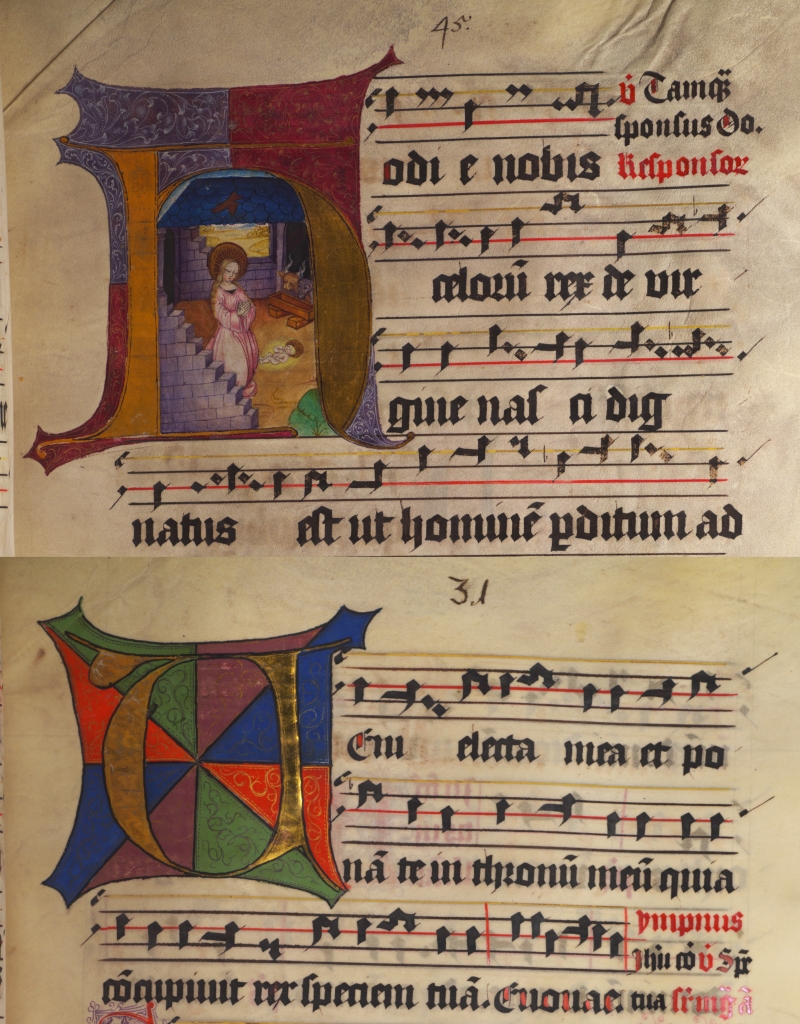 45.
v̄ Tamq̄
sponsus Do.
Hodi e nobis Responsor
celorū rex de vir
gine nas ci dig
natus est ut hominē ꝑditum ad
31
Veni electa mea et po
nā te in thronū meū quia
ympnus
Jhū cō v̄ Spē
cōcupiuit rex speciem tuā. Euouae. tua